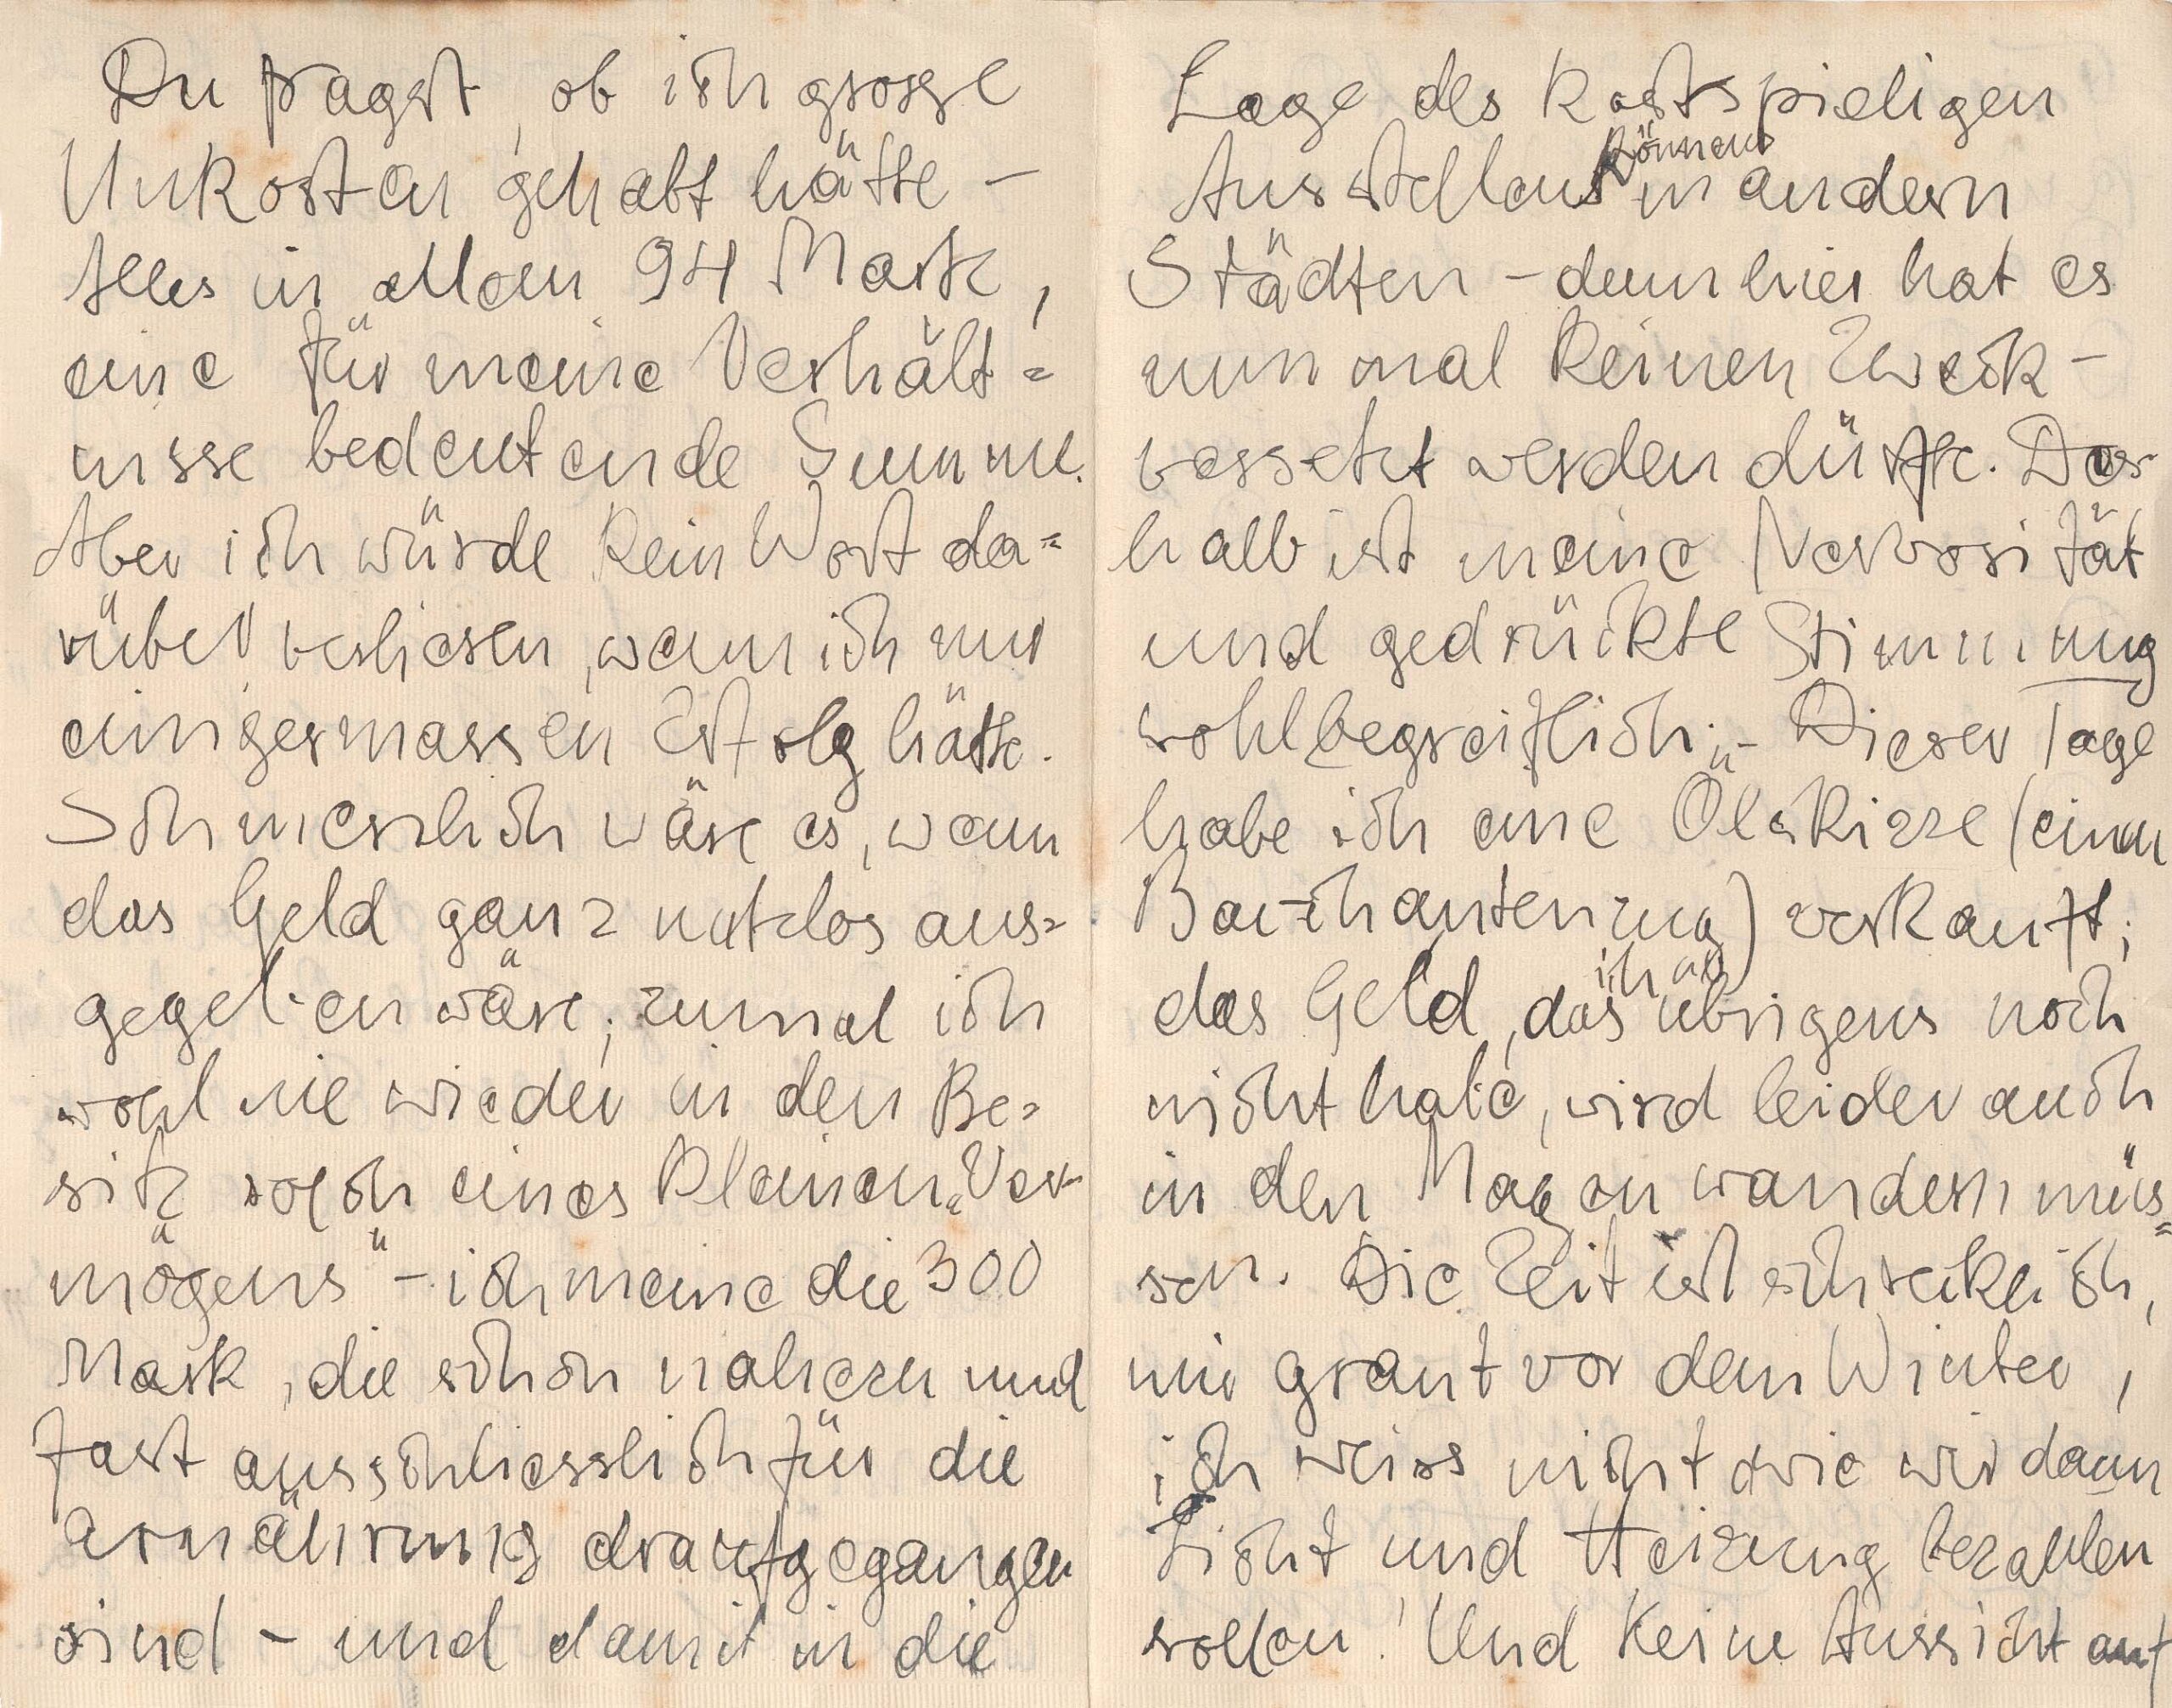 Du fragst, ob ich grosse
Unkosten gehabt hätte –
Alles in allem 94 Mark,
eine für meine Verhält=
nisse bedeutende Summe.
Aber ich würde kein Wort da=
rüber verlieren, wenn ich nur
einigermassen Erfolg hätte.
Schmerzlich wäre es, wenn
das Geld ganz nutzlos aus=
gegeben wäre, zumal ich
wohl nie wieder in den Be=
sitz solch eines kleinen „Ver=
mögens" – ich meine die 300
Mark, die schon nahezu und
fast ausschliesslich für die
Ernährung draufgegangen
sind – und damit in die
Lage des kostspieligen
Ausstellens können in andern
Städten – denn hier hat es
nun mal keinen Zweck –
versetzt werden dürfte. Des=
halb ist meine Nervosität
und gedrückte Stimmung
wohl begreiflich. – Dieser Tage
habe ich eine Ölskizze (einen
Bacchantenzug) verkauft;
das Geld, das ich übrigens noch
nicht habe, wird leider auch
in den Magen wandern müs=
sen. Die Zeit ist schrecklich,
mir graut vor dem Winter,
ich weiss nicht wie wir dann
Licht und Heizung bezahlen
sollen! Und keine Aussicht auf